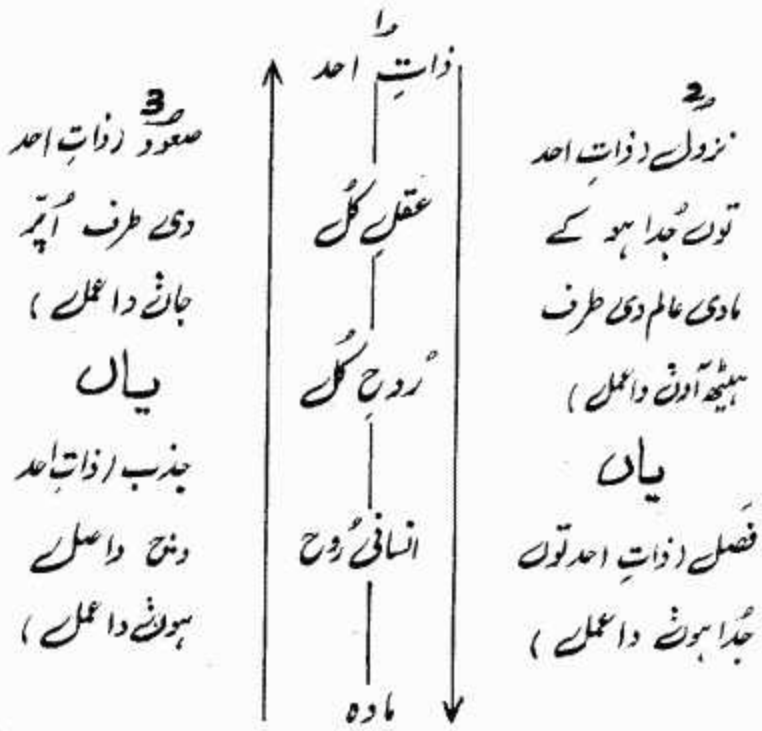 1
ذاتِ احد
عقلِ کُل
رُوحِ کُل
انسانی رُوح
مادہ
2
نزول (ذاتِ احد
توں جُدا ہو کے
مادی عالم دی طرف
ہیٹھ آون دا عمل)
یاں
فَصل (ذاتِ احد توں
جُدا ہون دا عمل)
3
صعود (ذاتِ احد
دی طرف اُپّر
جان دا عمل)
یاں
جذب (ذاتِ احد
وچ واصل
ہون دا عمل)